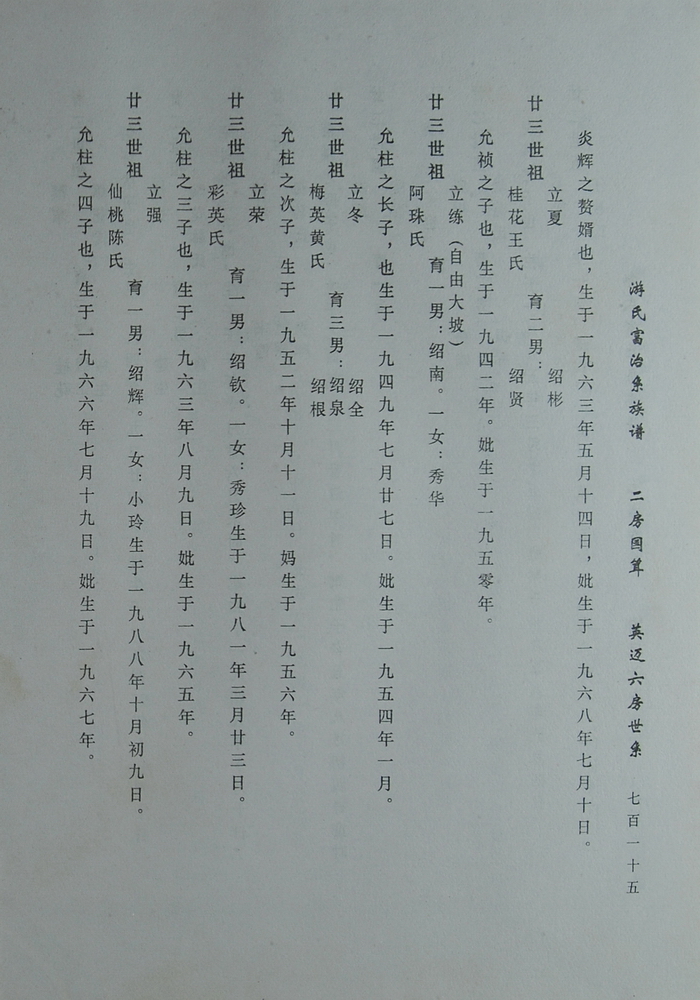 游氏富治系族谱 二房国箪 英迈六房世系 七百一十五
炎辉之赘婿也，生于一九六三年五月十四日，妣生于一九六八年七月十日。
廿三世祖 立夏 桂花王氏 育二男：绍彬 绍贤
允祯之子也，生于一九四二年。妣生于一九五零年。
廿三世祖 立练（自由大坡） 阿珠氏 育一男：绍南。一女：秀华
允柱之长子，也生于一九四九年七月廿七日。妣生于一九五四年一月。
廿三世祖 立冬 梅英黄氏 育三男：绍全 绍泉 绍根
允柱之次子，生于一九五二年十月十一日。妈生于一九五六年。
廿三世祖 立荣 彩英氏 育一男：绍钦。一女：秀珍生于一九八一年三月廿三日。
允柱之三子也，生于一九六三年八月九日。妣生于一九六五年。
廿三世祖 立强 仙桃陈氏 育一男：绍辉。一女：小玲生于一九八八年十月初九日。
允柱之四子也，生于一九六六年七月十九日。妣生于一九六七年。